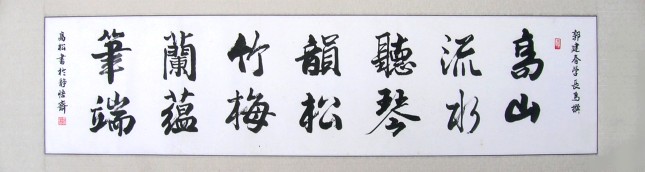 郭建春学长惠撰
高山
流水
聽琴
韻松
竹梅
蘭蘊
筆端
高松書於靜悟齋